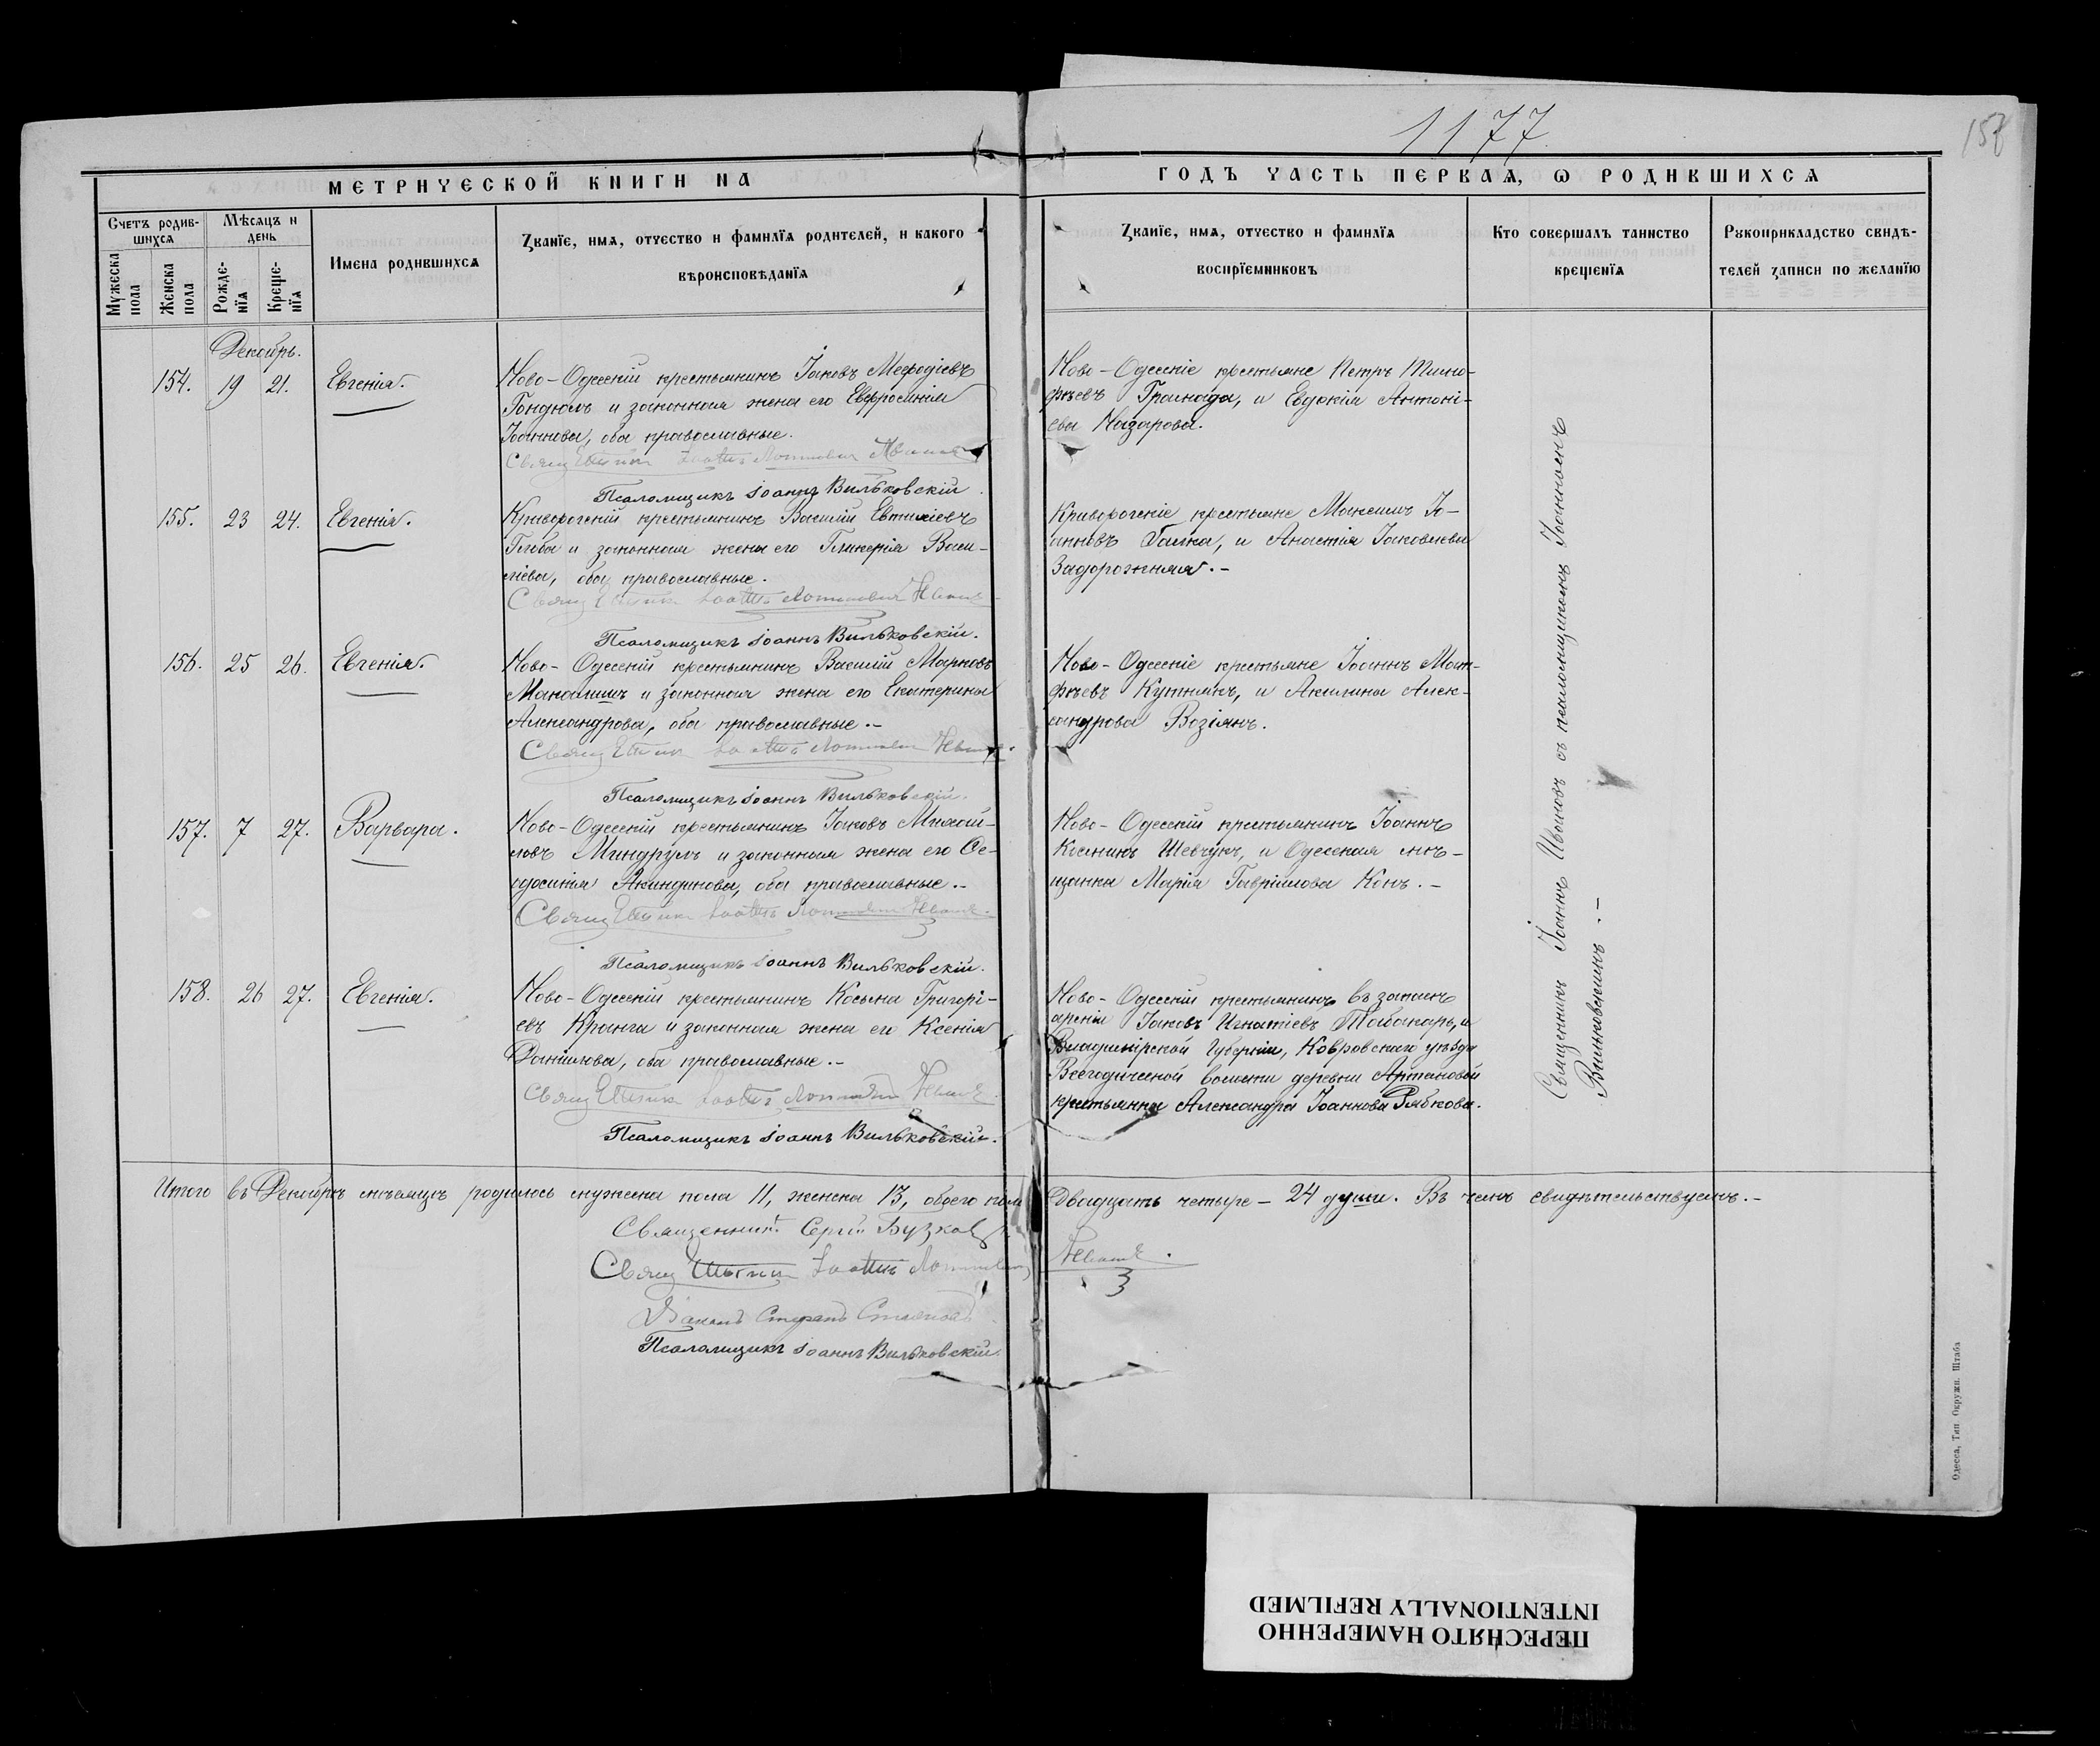 1177
157
МЕТРИЧЕСКОЙ КНИГИ НА
ГОДЪ ЧАСТЬ ПЕРВАѦ, Ѡ РОДИВШИХСѦ
Счетъ родив-
шихсѧ
Мѣсѧцъ и
день
Мужеска
пола
Женска
пола
Рожде-
нїѧ
Креще-
нїѧ
Имена родившихсѧ
Званїе, имѧ, отчество и фамилїѧ родителей, и какого
вѣроисповѣданїѧ
Званїе, имѧ, отчество и фамилїѧ
воспрїемниковъ
Кто совершалъ таинство
крещенїѧ
Рукоприкладство свидѣ-
телей записи по желанїю
Декабрь.
154. 19 21. Евгенія.
Ново-Одесскій крестьянинъ Іаковъ Меѳодіевъ
Гондюлъ и законная жена его Евфросинія
Іоаннова, оба православные.
Священникъ
Псаломщикъ Іоаннъ Вильковскій
Ново-Одесскіе крестьяне Петръ Тимо-
фѣевъ Гранада, и Евдокія Антоні-
ева Назарова.
155. 23 24. Евгенія.
Криворогскій крестьянинъ Василій Евтихіевъ
Глеба и законная жена его Гликерія Васи-
ліева, оба православные.
Священникъ
Псаломщикъ Іоаннъ Вильковскій.
Криворогскіе крестьяне Максимъ Іо-
анновъ Галка, и Анастасія Іаковлева
Задорожняя.-
156. 25 26. Евгенія.
Ново-Одесскій крестьянинъ Василій Марковъ
Манашимъ и законная жена его Екатерина
Александрова, оба православные.-
Священникъ
Псаломщикъ Іоаннъ Вильковскій.
Ново-Одесскіе крестьяне Іоаннъ Мат-
фѣевъ Кутнякъ, и Акилина Алек-
сандрова Возіянъ.
157. 7 27. Варвара.
Ново-Одесскій крестьянинъ Іаковъ Михай-
ловъ Миндрулъ и законная жена его Ѳе-
одосинія Акиндинова, оба православные.-
Священникъ
Псаломщикъ Іоаннъ Вильковскій.
Ново-Одесскій крестьянинъ Іоаннъ
Косминъ Шевчукъ, и Одесская мѣ-
щанка Марія Гавріилова Конъ.-
158. 26 27. Евгенія.
Ново-Одесскій крестьянинъ Косьма Григорі-
евъ Кранга и законная жена его Ксенія
Даніилова, оба православные.-
Священникъ
Псаломщикъ Іоаннъ Вильковскій.
Ново-Одесскій крестьянинъ въ запасѣ
арміи Іаковъ Игнатіевъ Табакарь, и
Владимірской Губерніи, Ковровскаго уѣзда
Всегодической волости деревни Артемовой
крестьянка Александра Іоаннова Рябкова.
Священникъ Іоаннъ Ивановъ съ псаломщикомъ Іоанномъ
Вильковскимъ.-
Итого въ Декабрѣ мѣсяцѣ родилось мужска пола 11, женска 13, обоего пола Двадцать четыре - 24 души. Въ чемъ свидѣтельствуемъ.-
Священникъ Сергій Бузков
Священникъ
Діаконъ Стефанъ
Псаломщикъ Іоаннъ Вильковскій.
Одесса, Тип. Окружн. Штаба
ПЕРЕСНЯТО НАМЕРЕННО
INTENTIONALLY REFILMED